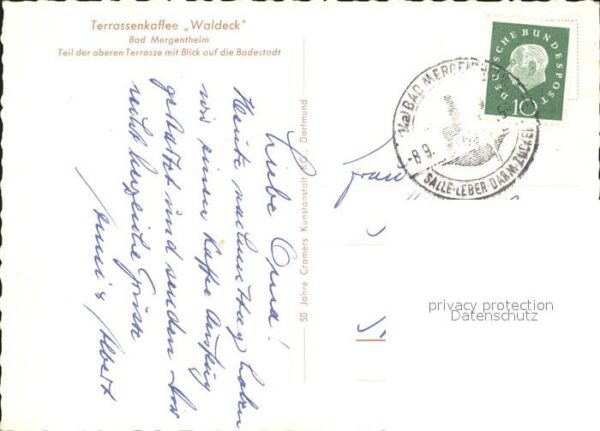 Terrassenkaffee „Waldeck"
Bad Mergentheim
Teil der oberen Terrasse mit Blick auf die Badestadt
Liebe Oma!
Heute nachmittag haben
wir einen Kaffe Ausflug
gestartet und senden Dir
recht herzliche Grüße
Anni & Albert
50 Jahre Cramers Kunstanstalt KG., Dortmund
DEUTSCHE BUNDESPOST
10
BAD MERGENTHEIM
-8.9.
GALLE-LEBER-DARM-ZUCKER
Frau
privacy protection
Datenschutz